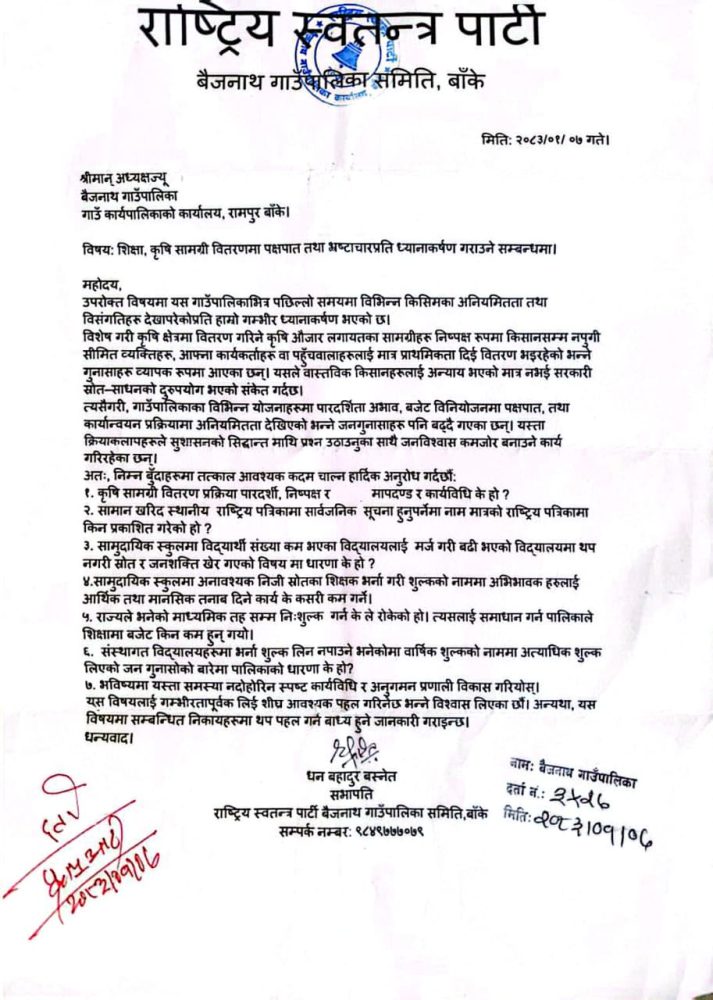 राष्ट्रिय स्वतन्त्र पार्टी
बैजनाथ गाउँपालिका समिति, बाँके
मिति: २०८३/०१/ ०७ गते।
श्रीमान् अध्यक्षज्यू
बैजनाथ गाउँपालिका
गाउँ कार्यपालिकाको कार्यालय, रामपुर बाँके।
विषय: शिक्षा, कृषि सामग्री वितरणमा पक्षपात तथा भ्रष्टाचारप्रति ध्यानाकर्षण गराउने सम्बन्धमा।
महोदय,
उपरोक्त विषयमा यस गाउँपालिकाभित्र पछिल्लो समयमा विभिन्न किसिमका अनियमितता तथा
विसंगतिहरू देखापरेकोप्रति हाम्रो गम्भीर ध्यानाकर्षण भएको छ।
विशेष गरी कृषि क्षेत्रमा वितरण गरिने कृषि औजार लगायतका सामग्रीहरू निष्पक्ष रूपमा किसानसम्म नपुगी
सीमित व्यक्तिहरू, आफ्ना कार्यकर्ताहरू वा पहुँचवालाहरूलाई मात्र प्राथमिकता दिई वितरण भइरहेको भन्ने
गुनासाहरू व्यापक रूपमा आएका छन्। यसले वास्तविक किसानहरूलाई अन्याय भएको मात्र नभई सरकारी
स्रोत–साधनको दुरुपयोग भएको संकेत गर्दछ।
त्यसैगरी, गाउँपालिकाका विभिन्न योजनाहरूमा पारदर्शिता अभाव, बजेट विनियोजनमा पक्षपात, तथा
कार्यान्वयन प्रक्रियामा अनियमितता देखिएको भन्ने जनगुनासाहरू पनि बढ्दै गएका छन्। यस्ता
क्रियाकलापहरूले सुशासनको सिद्धान्त माथि प्रश्न उठाउनुका साथै जनविश्वास कमजोर बनाउने कार्य
गरिरहेका छन्।
अतः, निम्न बुँदाहरूमा तत्काल आवश्यक कदम चाल्न हार्दिक अनुरोध गर्दछौं:
१. कृषि सामग्री वितरण प्रक्रिया पारदर्शी, निष्पक्ष र मापदण्ड र कार्यविधि के हो ?
२. सामान खरिद स्थानीय राष्ट्रिय पत्रिकामा सार्वजनिक सूचना हुनुपर्नेमा नाम मात्रको राष्ट्रिय पत्रिकामा
किन प्रकाशित गरेको हो ?
३. सामुदायिक स्कुलमा विद्यार्थी संख्या कम भएका विद्यालयलाई मर्ज गरी बढी भएको विद्यालयमा थप
नगरी स्रोत र जनशक्ति खेर गएको विषय मा धारणा के हो ?
४.सामुदायिक स्कुलमा अनावश्यक निजी स्रोतका शिक्षक भर्ना गरी शुल्कको नाममा अभिभावक हरुलाई
आर्थिक तथा मानसिक तनाब दिने कार्य के कसरी कम गर्ने।
५. राज्यले भनेको माध्यमिक तह सम्म निःशुल्क गर्न के ले रोकेको हो। त्यसलाई समाधान गर्न पालिकाले
शिक्षामा बजेट किन कम हुन् गयो।
६. संस्थागत विद्यालयहरुमा भर्ना शुल्क लिन नपाउने भनेकोमा वार्षिक शुल्कको नाममा अत्याधिक शुल्क
लिएको जन गुनासोको बारेमा पालिकाको धारणा के हो?
७. भविष्यमा यस्ता समस्या नदोहोरिन स्पष्ट कार्यविधि र अनुगमन प्रणाली विकास गरियोस्।
यस विषयलाई गम्भीरतापूर्वक लिई शीघ्र आवश्यक पहल गरिनेछ भन्ने विश्वास लिएका छौं। अन्यथा, यस
विषयमा सम्बन्धित निकायहरूमा थप पहल गर्न बाध्य हुने जानकारी गराइन्छ।
धन्यवाद।
धन बहादुर बस्नेत
सभापति
राष्ट्रिय स्वतन्त्र पार्टी बैजनाथ गाउँपालिका समिति,बाँके
सम्पर्क नम्बर: ९८४९७७७०७९
नाम: बैजनाथ गाउँपालिका
दर्ता नं.: ३५२६
मिति: २०८३/०१/०७
दर्ता
२०८३/०१/०७